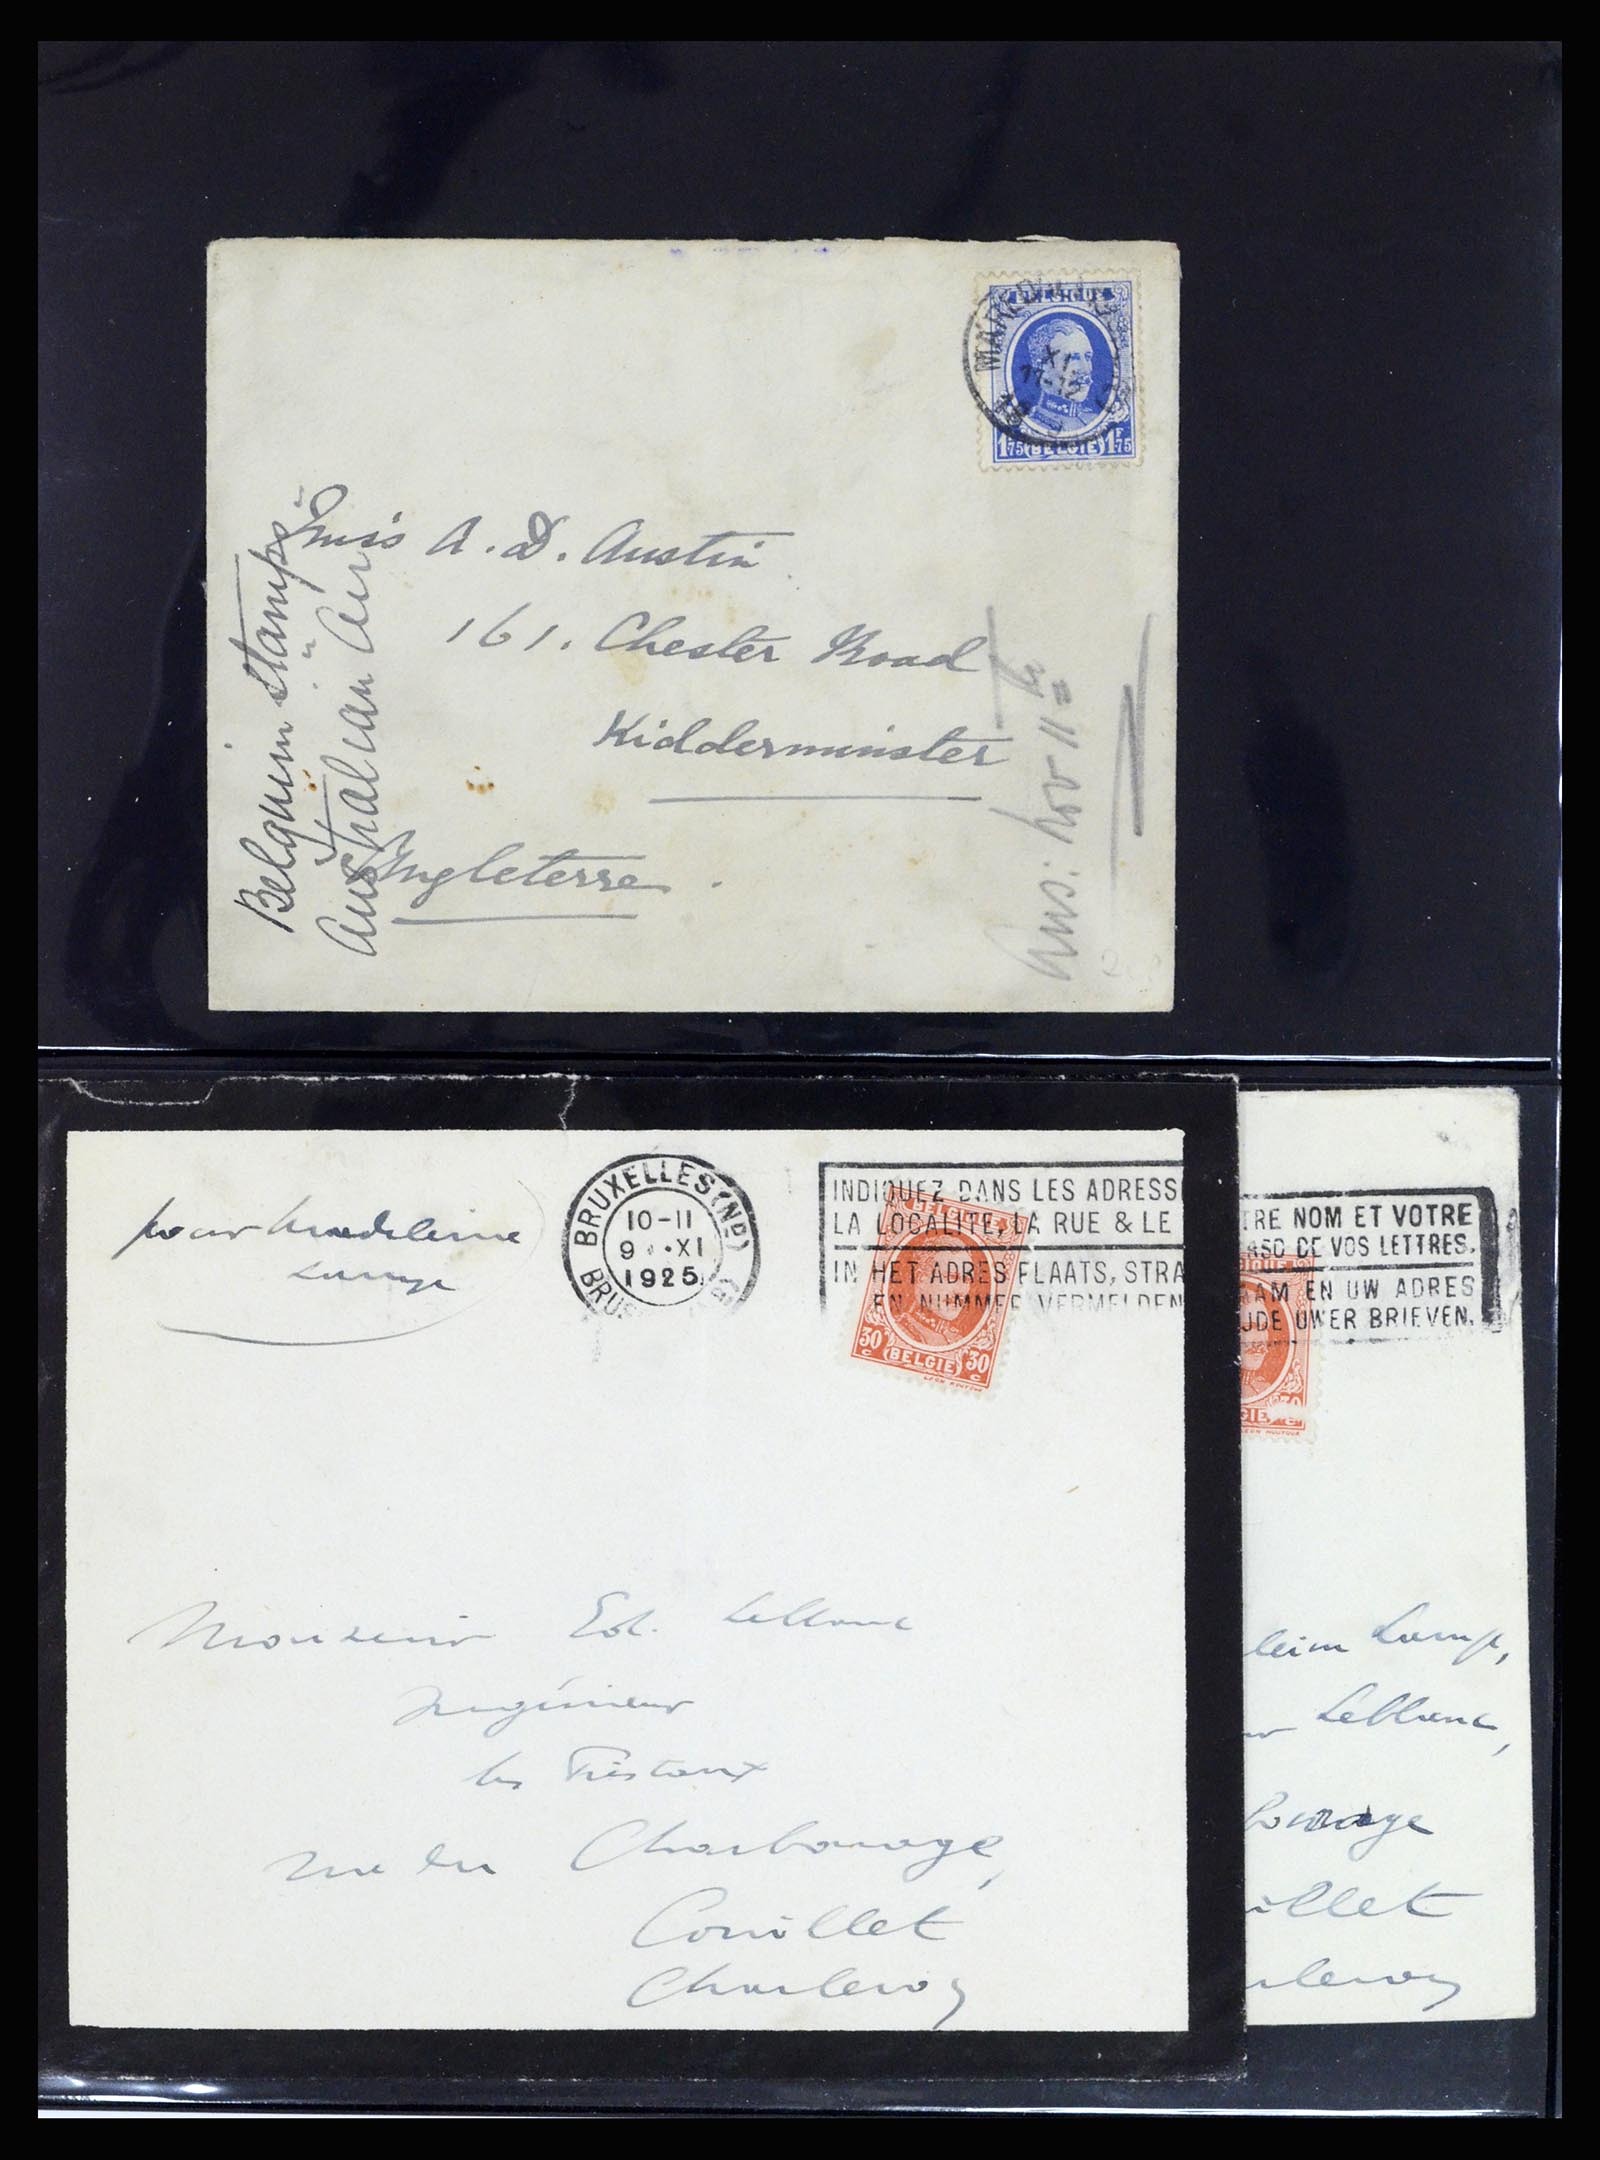 BELGIQUE
XI
11-12
1F75 BELGIE 1F75
Miss A. D. Austin
161. Chester Road
Kidderminster
Angleterre.
Belgium Stamps
Australian Air
Ans. Nov 11th
BRUXELLES (ND)
10-11
9 XI
1925
INDIQUEZ DANS LES ADRESS
LA LOCALITE, LA RUE & LE
IN HET ADRES PLAATS, STRA
EN NUMMER VERMELDEN
BELGIQUE
30 c BELGIE 30 c
pour Madeleine
Monsieur Ed. Leblanc
Ingénieur
rue du Charbonnage,
Couillet
Charleroy
TRE NOM ET VOTRE
RSO DE VOS LETTRES.
AM EN UW ADRES
JDE UWER BRIEVEN.
Leblanc,
illet